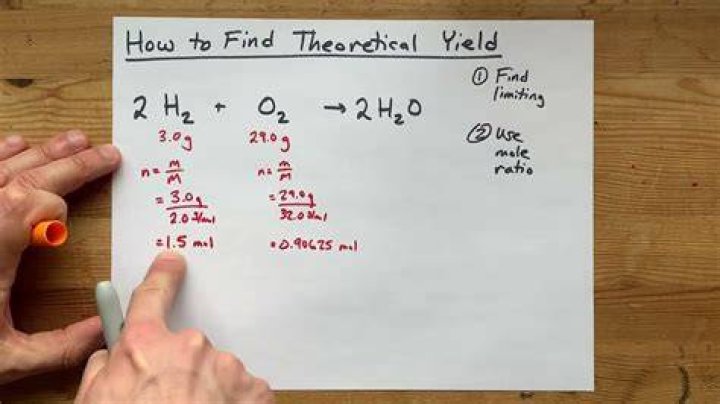 How to Find Theoretical Yield
① Find
limiting
2 H₂ + O₂ → 2 H₂O
② Use
mole
ratio
3.0g 29.0g
n = m/M n = m/M
= 3.0g/2.0 g/mol = 29.0g/32.0 g/mol
= 1.5 mol = 0.90625 mol